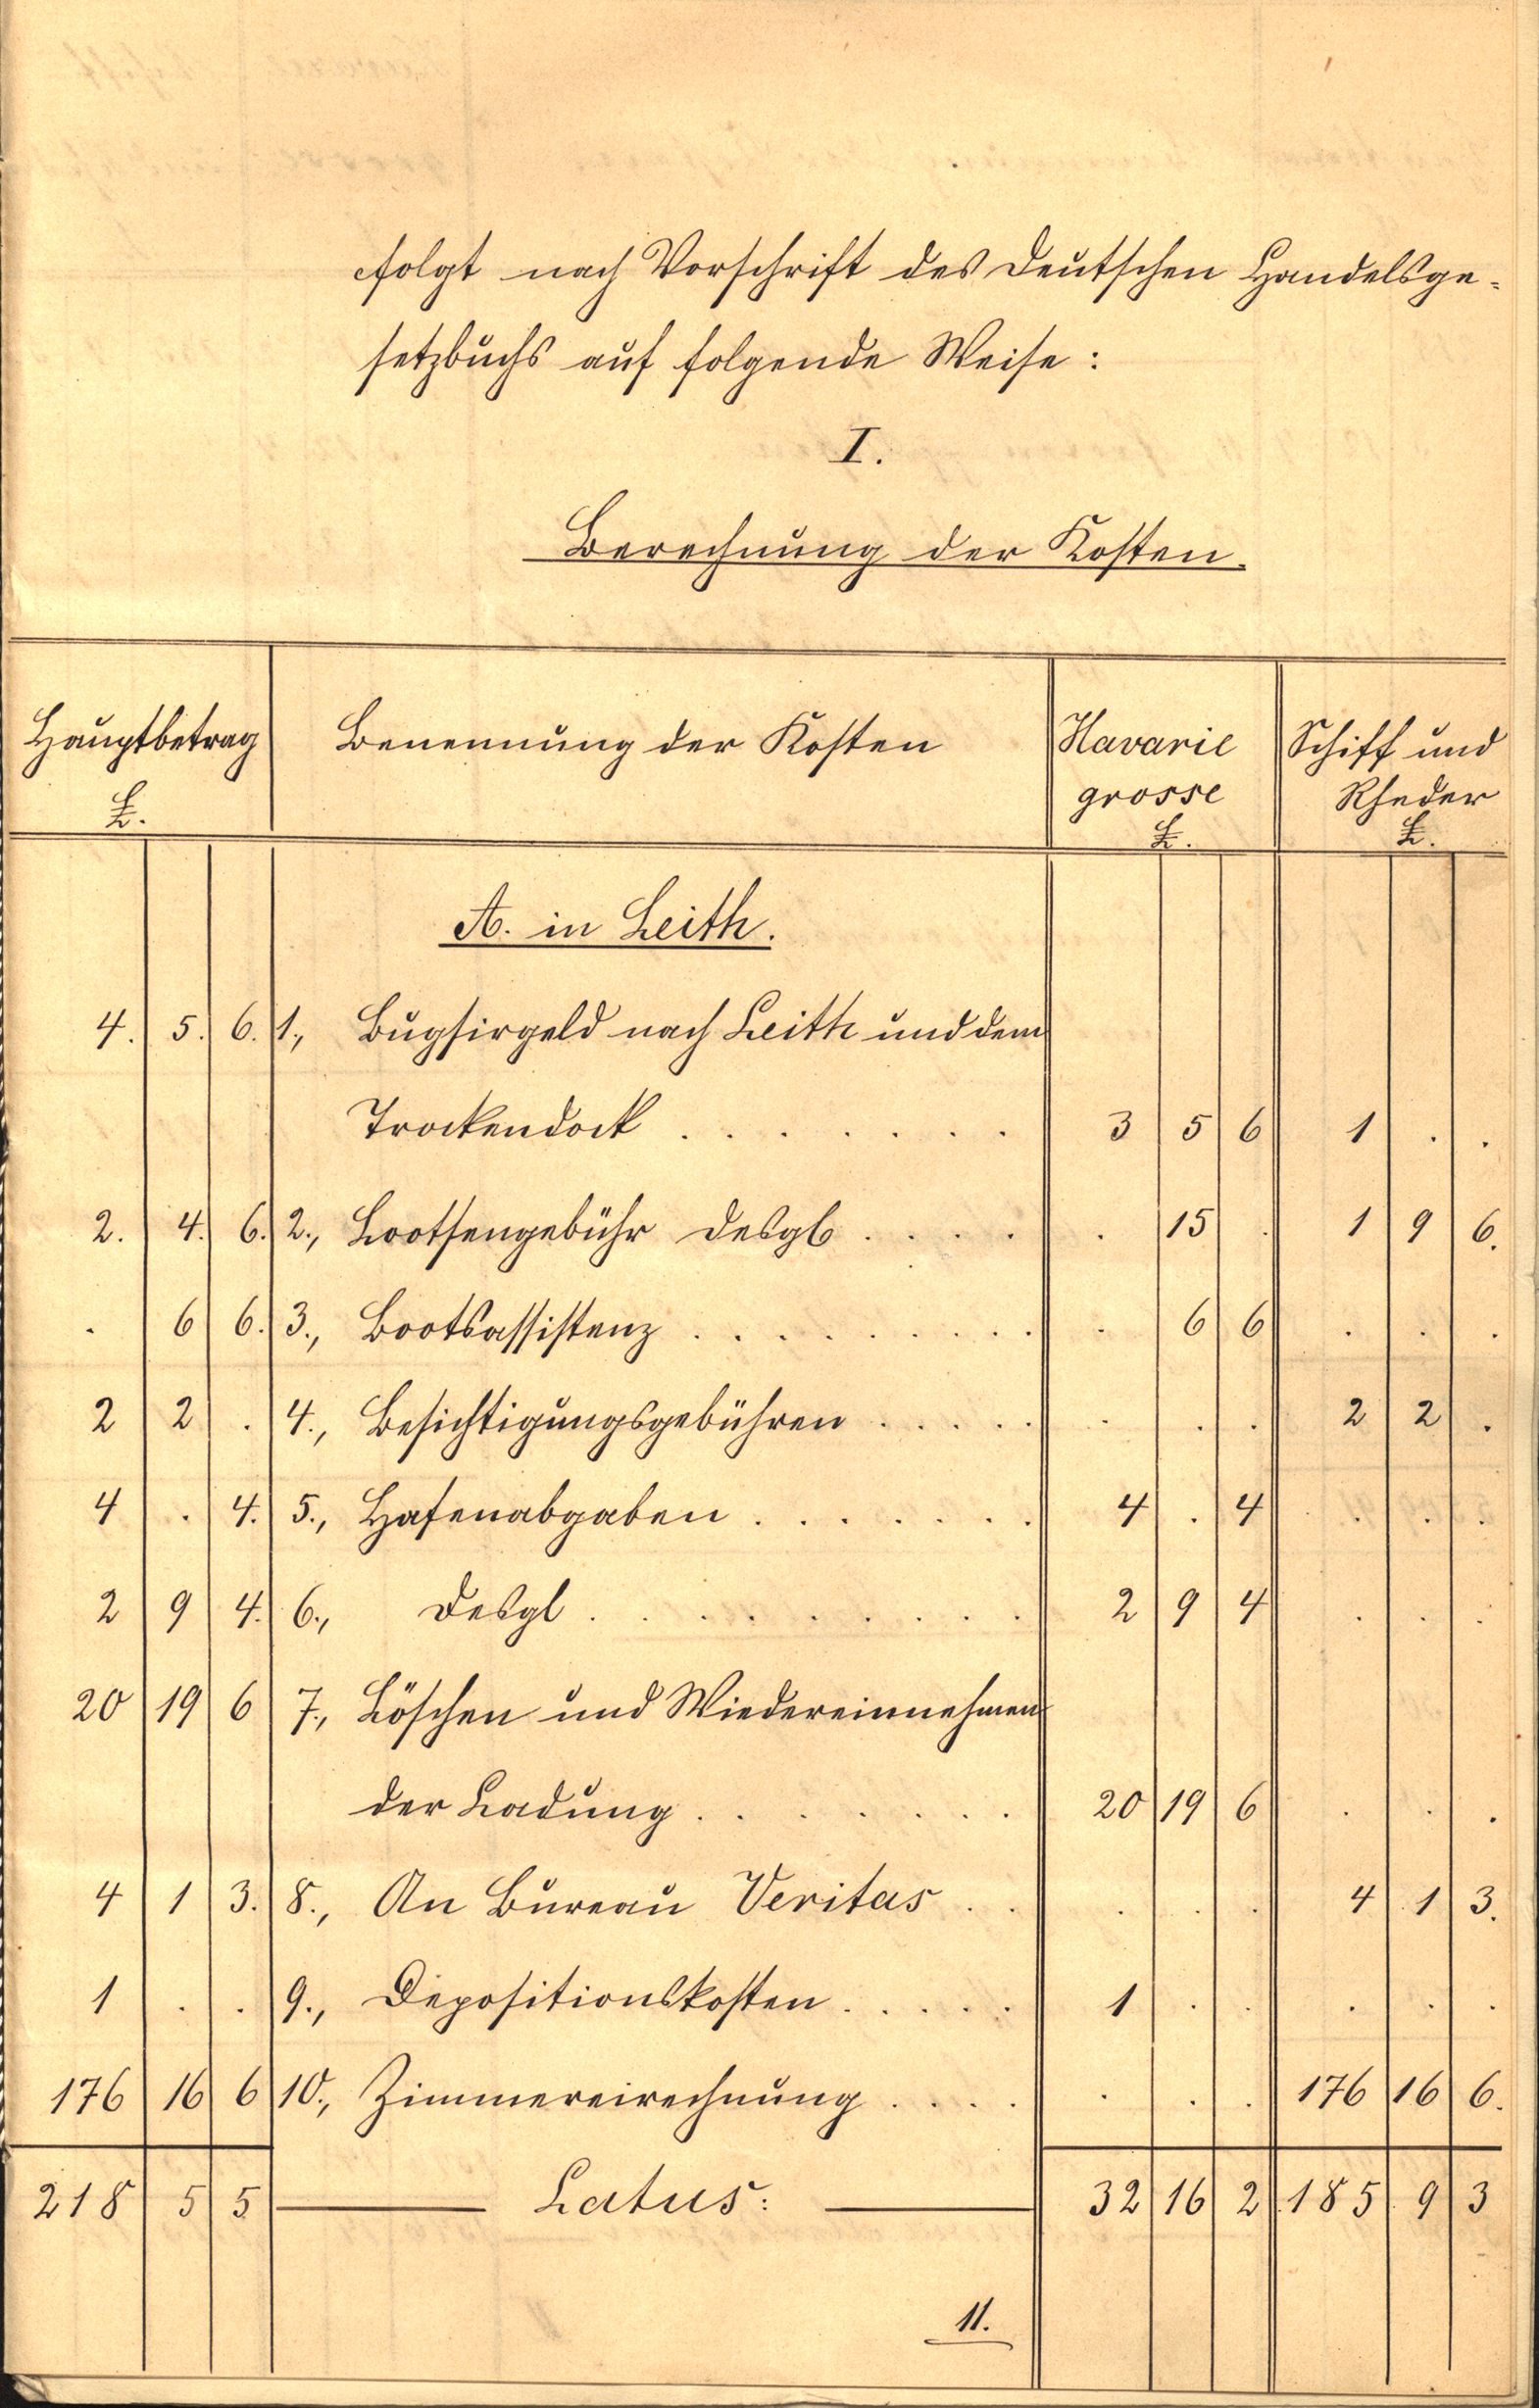 folgt nach Vorschrift des Deutschen Handelsge-
setzbuchs auf folgende Weise:
I.
Berechnung der Kosten.
Hauptbetrag £. | Benennung der Kosten | Havarie grosse £. | Schiff und Rheder £.
A. in Leith.
4. 5. 6. 1., Bugsirgeld nach Leith und dem
Trockendock . . . . . . . 3 5 6 1 . .
2. 4. 6. 2., Lootsengebühr desgl. . . . . . 15 . 1 9 6.
. 6 6. 3., Bootsassistenz . . . . . . . . . 6 6 . . .
2 2 . 4., Besichtigungsgebühren . . . . . . . . 2 2 .
4 . 4. 5., Hafenabgaben . . . . . . . 4 . 4 . . .
2 9 4. 6., Desgl . . . . . . . . . 2 9 4 . . .
20 19 6 7., Löschen und Wiedereinnehmen
der Ladung . . . . . . . 20 19 6 . . .
4 1 3. 8., An Bureau Veritas . . . . . 4 1 3.
1 . . 9., Depositionskosten . . . . . 1 . . . . .
176 16 6 10., Zimmereirechnung . . . . . . . 176 16 6.
218 5 5 Latus: 32 16 2 185 9 3
11.